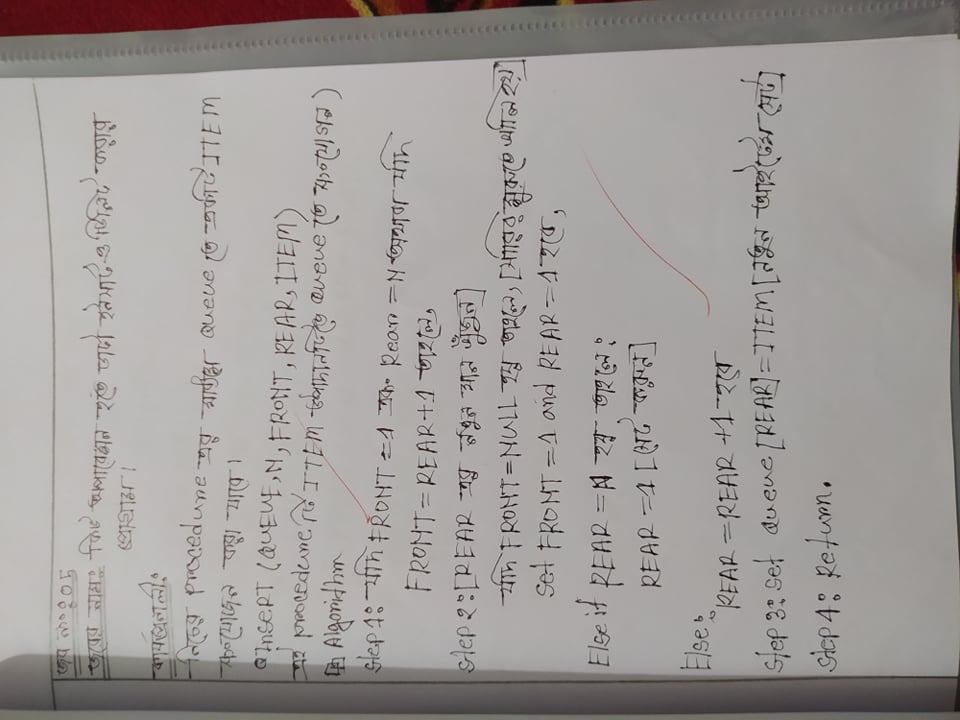 কাজ নং: ০৫
কাজের নাম: একটি
কার্যপ্রণালী:
নিচের procedure এর মাধ্যমে queue তে একটি ITEM
সংযোজন করা যায়।
QINSERT (QUEUE, N, FRONT, REAR, ITEM)
এই procedure টি ITEM queue তে সংযোজন)
Algorithm
Step 1: যদি FRONT = 1 এবং Rear = N অথবা যদি
FRONT = REAR + 1 তাহলে,
Step 2: [REAR এর নতুন মান খুঁজুন]
যদি FRONT = NULL হয় তাহলে,
Set FRONT = 1 and REAR = 1 হবে,
Else if REAR = N হয় তাহলে:
REAR = 1 [সেট করুন]
Else:
REAR = REAR + 1 হবে
Step 3: Set queue [REAR] = ITEM
Step 4: Return.